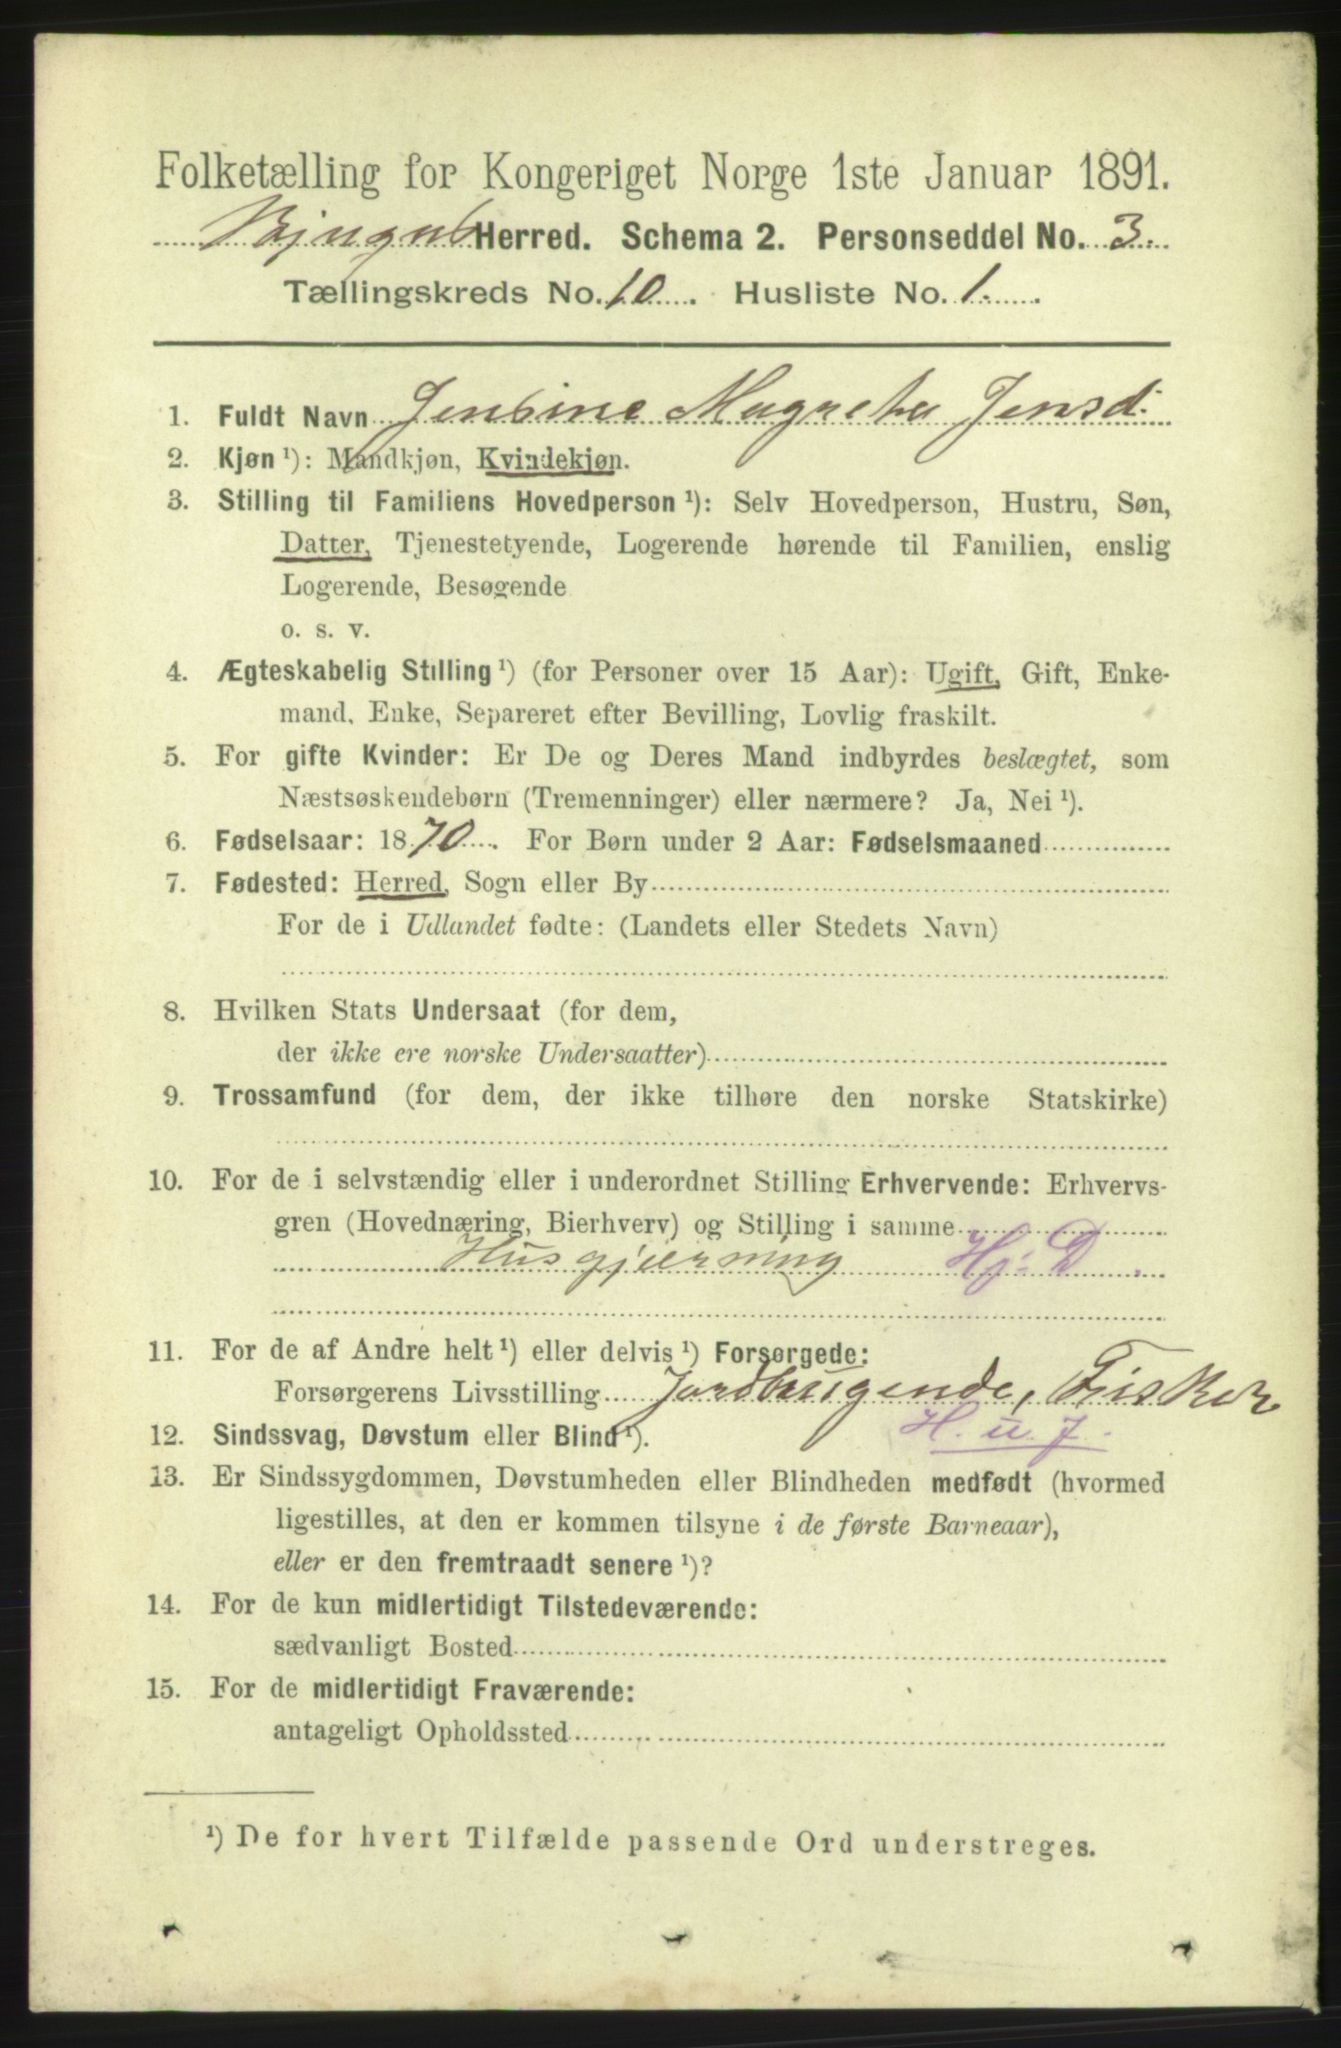 Folketælling for Kongeriget Norge 1ste Januar 1891.
Bjugns Herred. Schema 2. Personseddel No. 3.
Tællingskreds No. 10. Husliste No. 1.
1. Fuldt Navn Jensine Magreta Jensd.
2. Kjøn ¹): Mandkjøn, Kvindekjøn.
3. Stilling til Familiens Hovedperson ¹): Selv Hovedperson, Hustru, Søn,
Datter, Tjenestetyende, Logerende hørende til Familien, enslig
Logerende, Besøgende
o. s. v.
4. Ægteskabelig Stilling ¹) (for Personer over 15 Aar): Ugift, Gift, Enke-
mand, Enke, Separeret efter Bevilling, Lovlig fraskilt.
5. For gifte Kvinder: Er De og Deres Mand indbyrdes beslægtet, som
Næstsøskendebørn (Tremenninger) eller nærmere? Ja, Nei ¹).
6. Fødselsaar: 1870. For Børn under 2 Aar: Fødselsmaaned
7. Fødested: Herred, Sogn eller By
For de i Udlandet fødte: (Landets eller Stedets Navn)
8. Hvilken Stats Undersaat (for dem,
der ikke ere norske Undersaatter)
9. Trossamfund (for dem, der ikke tilhøre den norske Statskirke)
10. For de i selvstændig eller i underordnet Stilling Erhvervende: Erhvervs-
gren (Hovednæring, Bierhverv) og Stilling i samme
Husgjerning Hj. D.
11. For de af Andre helt ¹) eller delvis ¹) Forsørgede:
Forsørgerens Livsstilling Jordbrugende, Fisker
H. u. J.
12. Sindssvag, Døvstum eller Blind ¹).
13. Er Sindssygdommen, Døvstumheden eller Blindheden medfødt (hvormed
ligestilles, at den er kommen tilsyne i de første Barneaar),
eller er den fremtraadt senere ¹)?
14. For de kun midlertidigt Tilstedeværende:
sædvanligt Bosted
15. For de midlertidigt Fraværende:
antageligt Opholdssted
¹) De for hvert Tilfælde passende Ord understreges.